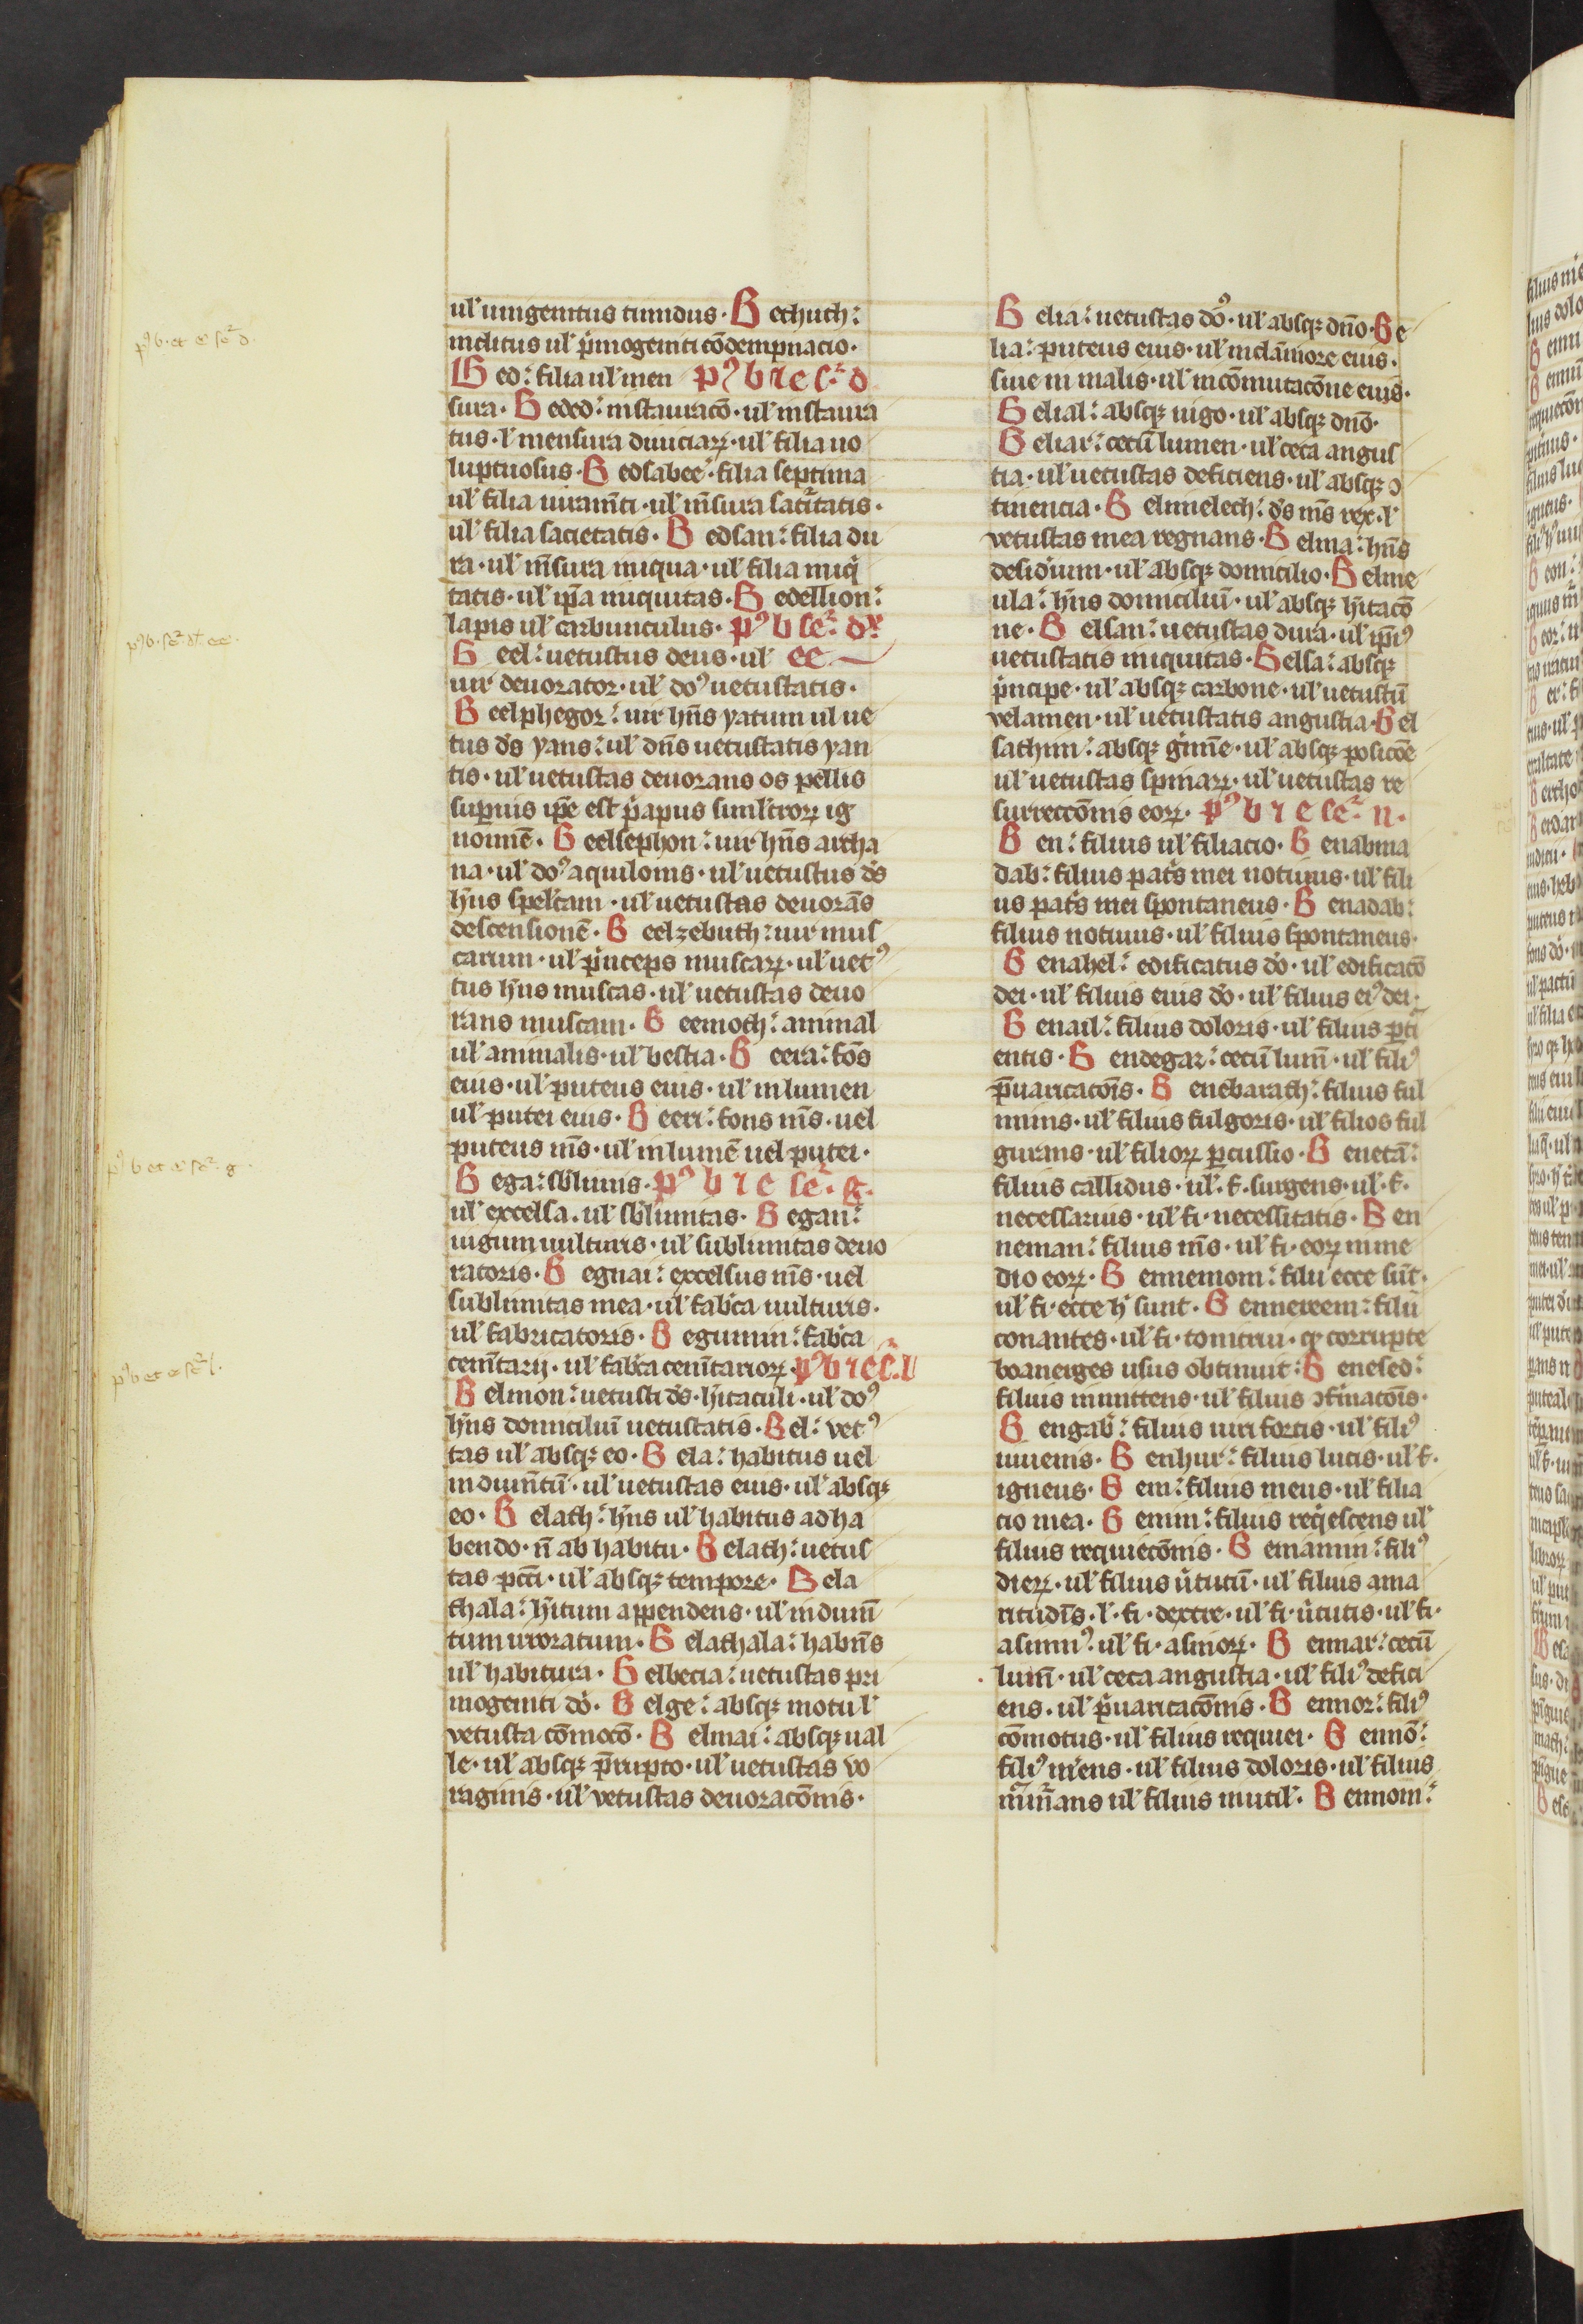 ul' unigenitus timidus · Bechuth :
inclitus ul' p̄mogeniti cōdempnacio ·
Bed : filia ul' men pꝰ b ⁊ e sc̄ · d
sura · Beded : instauracō · ul' instaura
tus · l' mensura diuiciaꝝ · ul' filia uo
luptuosus · Bedsabee : filia septima
ul' filia iuram̄ti · ul' m̄sura satitatis ·
ul' filia sacietatis · Bedsan : filia du
ra · ul' m̄sura iniqua · ul' filia iniq̄
tatis · ul' ip̄a iniquitas · Bedellion :
lapis ul' carbunculus · pꝰ b sc̄ · dr̄
Beel : uetustus deus · ul' ee
uir deuorator · ul' doꝰ uetustatis ·
Beelphegor : uir hn̄s yatum ul' ue
tus ds̄ yans : ul' dn̄s uetustatis yan
tis · ul' uetustas deuorans os pellis
superius ip̄e est p̄apus simlacroꝝ ig
nominē · Beelsephon : uir hn̄s archa
na · ul' doꝰ aquilonis · ul' uetustus ds̄
hn̄s speculam · ul' uetustas deuorās
descensionē · Beelzebuth : uir mus
carum · ul' p̄nceps muscaꝝ · ul' uetꝰ
tus hn̄s muscas · ul' uetustas deuo
rans muscam · Beemoth : animal
ul' animalis · ul' bestia · Beera : fōs
eius · ul' puteus eius · ul' in lumen
ul' putei eius · Beeri : fons m̄s · uel
puteus m̄s · ul' in lumē uel putei ·
Bega : sb̄limis · pꝰ b ⁊ e sc̄ · g ·
ul' excelsa · ul' sb̄limitas · Began :
iugum uulturis · ul' sublimitas deuo
ratoris · Beguai : excelsus m̄s · uel
sublimitas mea · ul' fab̄ca uulturis ·
ul' fabricatoris · Begumin : fab̄ca
cem̄tarij · ul' fab̄ca cem̄tarioꝝ · pꝰ b ⁊ e sc̄ · l
Belmon : uetusti ds̄ · hītaculi · ul' doꝰ
hn̄s domiciliū uetustatis · Bel : vetꝰ
tas ul' absqꝫ eo · Bela : habitus uel
indum̄tū · ul' uetustas eius · ul' absqꝫ
eo · Belath : hn̄s ul' habitus ad ha
bendo · n̄ ab habitu · Belath : uetus
tas pcc̄i · ul' absqꝫ tempore · Bela
thala : hītum appendens · ul' indum̄
tum irroratum · Belathala : habn̄s
ul' habitura · Belbecia : uetustas pri
mogeniti dō · Belge : absqꝫ motu l'
vetusta cōmocō · Belmai : absqꝫ ual
le · ul' absqꝫ p̄rupto · ul' uetustas vo
raginis · ul' vetustas deuoracōnis ·
Belia : uetustas dō · ul' absqꝫ dn̄o · Be
lia : puteus eius · ul' in clāmore eius ·
siue in malis · ul' in cōmutacōne eius ·
Belial : absqꝫ iugo · ul' absqꝫ dn̄o ·
Beliar : cecū lumen · ul' ceca angus
tia · ul' uetustas deficiens · ul' absqꝫ ↄ
tinencia · Belmelech : ds̄ m̄s rex · l'
vetustas mea regnans · Belma : hn̄s
desidium · ul' absqꝫ domicilio · Belme
ula : hn̄s domiciliū · ul' absqꝫ hītacō
ne · Belsan : uetustas dura · ul' ip̄iꝰ
uetustatis iniquitas · Belsa : absqꝫ
p̄ncipe · ul' absqꝫ carbone · ul' uetustū
velamen · ul' uetustatis angustia · Bel
sathim : absqꝫ gīme · ul' absqꝫ posicōe
ul' uetustas spinaꝝ · ul' uetustas re
surreccōnis eoꝝ · pꝰ b ⁊ e sc̄ · n ·
Ben : filius ul' filiacio · Benabina
dab : filius pat̄s mei notiuus · ul' fili
us pat̄s mei spontaneus · Benadab :
filius notiuus · ul' filius spontaneus ·
Benahel : edificatus dō · ul' edificacō
dei · ul' filius eius dō · ul' filius eiꝰ dei ·
Benail : filius doloris · ul' filius pt̄i
entis · Bendegar : cecū lum̄ · ul' filiꝰ
p̄uaricacōis · Benebarath : filius ful
minis · ul' filius fulgoris · ul' filios ful
gurans · ul' filioꝝ p̄cussio · Benetā :
filius callidus · ul' · f · surgens · ul' · f ·
necessarius · ul' fi · necessitatis · Ben
neman : filius m̄s · ul' fi · eoꝝ in me
dio eoꝝ · Bennemom : filii ecce sūt ·
ul' fi · ecce hī sunt · Bennereem : filii
conantes · ul' fi · tonitrui · qꝫ corrupte
boanerges usus obtinuit : Benesed :
filius inmittens · ul' filius ↄfirmacōis ·
Bengab̄ : filius uiri fortis · ul' filiꝰ
iuuenis · Benhur : filius lucis · ul' f ·
igneus · Beni : filius meus · ul' filia
cio mea · Benim : filius req̄escens ul'
filius requiecōnis · Beniamin : filiꝰ
dieꝝ · ul' filius ūtutū · ul' filius ama
ritudīs · l' · fi · dextre · ul' fi · ūtutis · ul' fi ·
asininꝰ · ul' fi · asinoꝝ · Bennar : cecū
lum̄ · ul' ceca angustia · ul' filiꝰ defici
ens · ul' p̄uaricacōnis · Bennor : filiꝰ
cōmotus · ul' filius requiei · Bennō :
filiꝰ mēns · ul' filius doloris · ul' filius
ul' filius inutil' · Bennom :
pꝰ b · et e sc̄ d ·
pꝰ b et e sc̄ g ·
pꝰ b et e sc̄ l ·